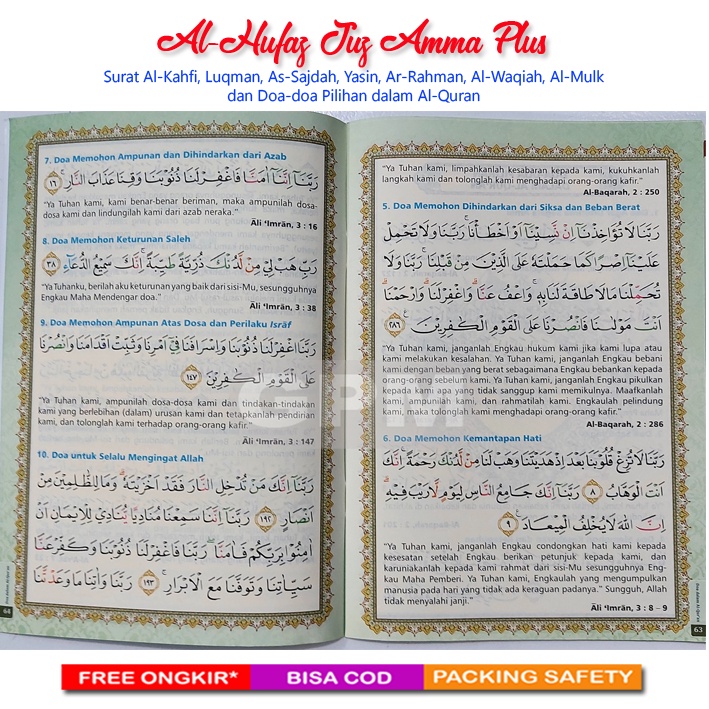 Al-Hufaz Juz Amma Plus
Surat Al-Kahfi, Luqman, As-Sajdah, Yasin, Ar-Rahman, Al-Waqiah, Al-Mulk
dan Doa-doa Pilihan dalam Al-Quran
"Ya Tuhan kami, limpahkanlah kesabaran kepada kami, kukuhkanlah
langkah kami dan tolonglah kami menghadapi orang-orang kafir."
Al-Baqarah, 2 : 250
5. Doa Memohon Dihindarkan dari Siksa dan Beban Berat
رَبَّنَا لَا تُؤَاخِذْنَآ اِنْ نَّسِيْنَآ اَوْ اَخْطَأْنَا ۚ رَبَّنَا وَلَا تَحْمِلْ
عَلَيْنَآ اِصْرًا كَمَا حَمَلْتَهٗ عَلَى الَّذِيْنَ مِنْ قَبْلِنَا ۚ رَبَّنَا وَلَا
تُحَمِّلْنَا مَا لَا طَاقَةَ لَنَا بِهٖ ۚ وَاعْفُ عَنَّا ۗ وَاغْفِرْ لَنَا ۗ وَارْحَمْنَا ۗ
اَنْتَ مَوْلٰىنَا فَانْصُرْنَا عَلَى الْقَوْمِ الْكٰفِرِيْنَ ٢٨٦
"Ya Tuhan kami, janganlah Engkau hukum kami jika kami lupa atau
kami melakukan kesalahan. Ya Tuhan kami, janganlah Engkau bebani
kami dengan beban yang berat sebagaimana Engkau bebankan kepada
orang-orang sebelum kami. Ya Tuhan kami, janganlah Engkau pikulkan
kepada kami apa yang tidak sanggup kami memikulnya. Maafkanlah
kami, ampunilah kami, dan rahmatilah kami. Engkaulah pelindung
kami, maka tolonglah kami menghadapi orang-orang kafir."
Al-Baqarah, 2 : 286
6. Doa Memohon Kemantapan Hati
رَبَّنَا لَا تُزِغْ قُلُوْبَنَا بَعْدَ اِذْ هَدَيْتَنَا وَهَبْ لَنَا مِنْ لَّدُنْكَ رَحْمَةً ۚ اِنَّكَ
اَنْتَ الْوَهَّابُ ٨ رَبَّنَآ اِنَّكَ جَامِعُ النَّاسِ لِيَوْمٍ لَّا رَيْبَ فِيْهِ ۗ
اِنَّ اللّٰهَ لَا يُخْلِفُ الْمِيْعَادَ ٩
"Ya Tuhan kami, janganlah Engkau condongkan hati kami kepada
kesesatan setelah Engkau berikan petunjuk kepada kami, dan
karuniakanlah kepada kami rahmat dari sisi-Mu sesungguhnya Eng-
kau Maha Pemberi. Ya Tuhan kami, Engkaulah yang mengumpulkan
manusia pada hari yang tidak ada keraguan padanya." Sungguh, Allah
tidak menyalahi janji."
Āli 'Imrān, 3 : 8 – 9
63
7. Doa Memohon Ampunan dan Dihindarkan dari Azab
رَبَّنَآ اِنَّنَآ اٰمَنَّا فَاغْفِرْ لَنَا ذُنُوْبَنَا وَقِنَا عَذَابَ النَّارِ ١٦
"Ya Tuhan kami, kami benar-benar beriman, maka ampunilah dosa-
dosa kami dan lindungilah kami dari azab neraka."
Āli 'Imrān, 3 : 16
8. Doa Memohon Keturunan Saleh
رَبِّ هَبْ لِيْ مِنْ لَّدُنْكَ ذُرِّيَّةً طَيِّبَةً ۚ اِنَّكَ سَمِيْعُ الدُّعَاۤءِ ٣٨
"Ya Tuhanku, berilah aku keturunan yang baik dari sisi-Mu, sesungguhnya
Engkau Maha Mendengar doa."
Āli 'Imrān, 3 : 38
9. Doa Memohon Ampunan Atas Dosa dan Perilaku Isrāf
رَبَّنَا اغْفِرْ لَنَا ذُنُوْبَنَا وَاِسْرَافَنَا فِيْٓ اَمْرِنَا وَثَبِّتْ اَقْدَامَنَا وَانْصُرْنَا
عَلَى الْقَوْمِ الْكٰفِرِيْنَ ١٤٧
"Ya Tuhan kami, ampunilah dosa-dosa kami dan tindakan-tindakan
kami yang berlebihan (dalam) urusan kami dan tetapkanlah pendirian
kami, dan tolonglah kami terhadap orang-orang kafir."
Āli 'Imrān, 3 : 147
10. Doa untuk Selalu Mengingat Allah
رَبَّنَآ اِنَّكَ مَنْ تُدْخِلِ النَّارَ فَقَدْ اَخْزَيْتَهٗ ۗ وَمَا لِلظّٰلِمِيْنَ مِنْ
اَنْصَارٍ ١٩٢ رَبَّنَآ اِنَّنَا سَمِعْنَا مُنَادِيًا يُّنَادِيْ لِلْاِيْمَانِ اَنْ
اٰمِنُوْا بِرَبِّكُمْ فَاٰمَنَّا ۖ رَبَّنَا فَاغْفِرْ لَنَا ذُنُوْبَنَا وَكَفِّرْ عَنَّا
سَيِّاٰتِنَا وَتَوَفَّنَا مَعَ الْاَبْرَارِ ۚ ١٩٣ رَبَّنَا وَاٰتِنَا مَا وَعَدْتَّنَا
64
FREE ONGKIR*
BISA COD
PACKING SAFETY